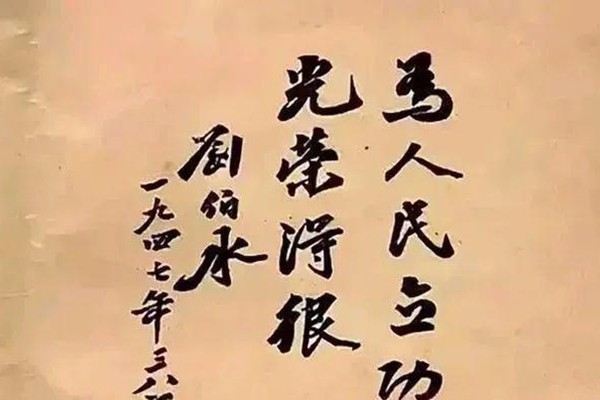 為人民立功
光荣得很
劉伯承
一九四七年三八